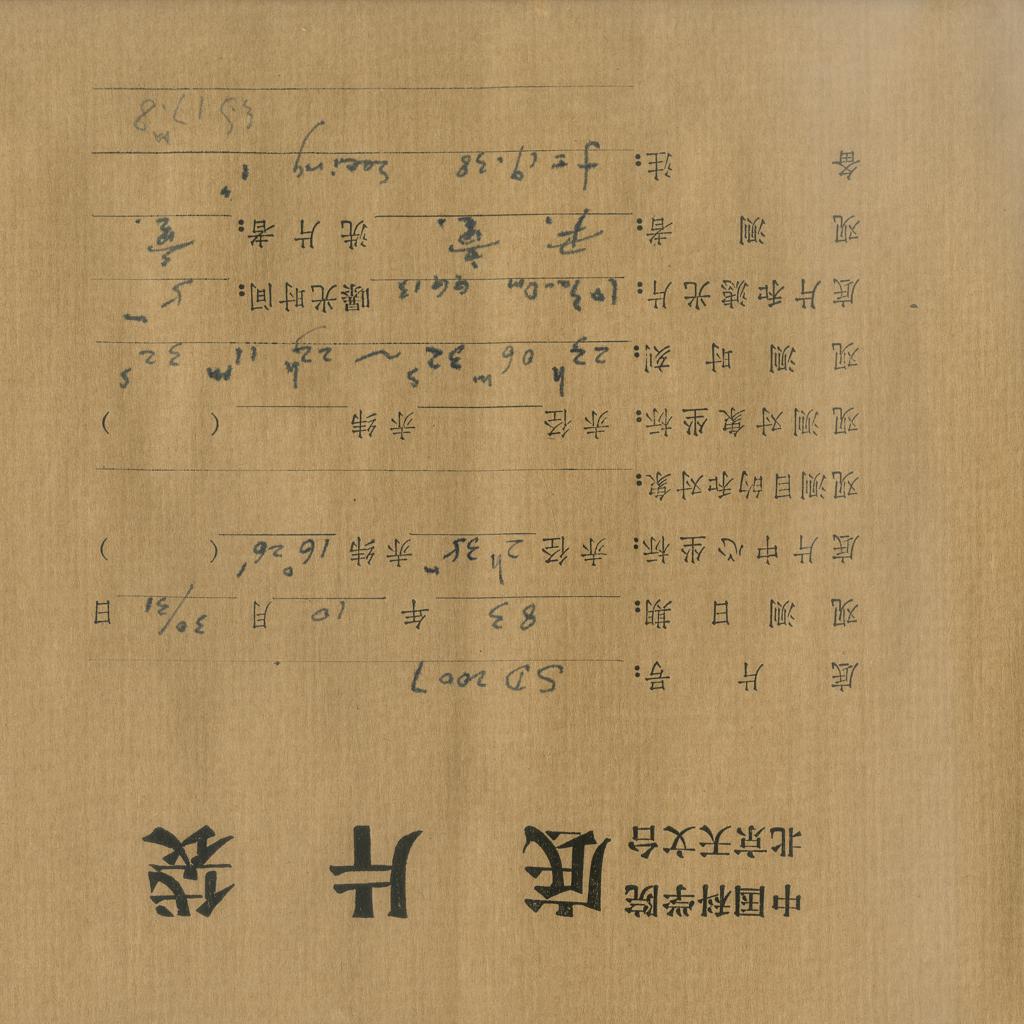 中国科学院
北京天文台
底片袋
底片号: SD2007
观测日期: 83 年 10 月 30/31 日
底片中心坐标: 赤径 2h 35m 赤纬 16°26′ ( )
观测目的和对象:
观测对象坐标: 赤径 赤纬 ( )
观测时刻: 23h 06m 32s ~ 23h 11m 32s
底片和滤光片: GG13 曝光时间: 5m
观测者: 洗片者:
备注: f=19.38 Seeing
17.8m